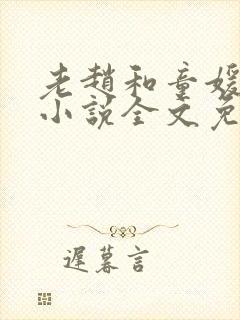 老趙和童媛
小說全文免
遲暮言